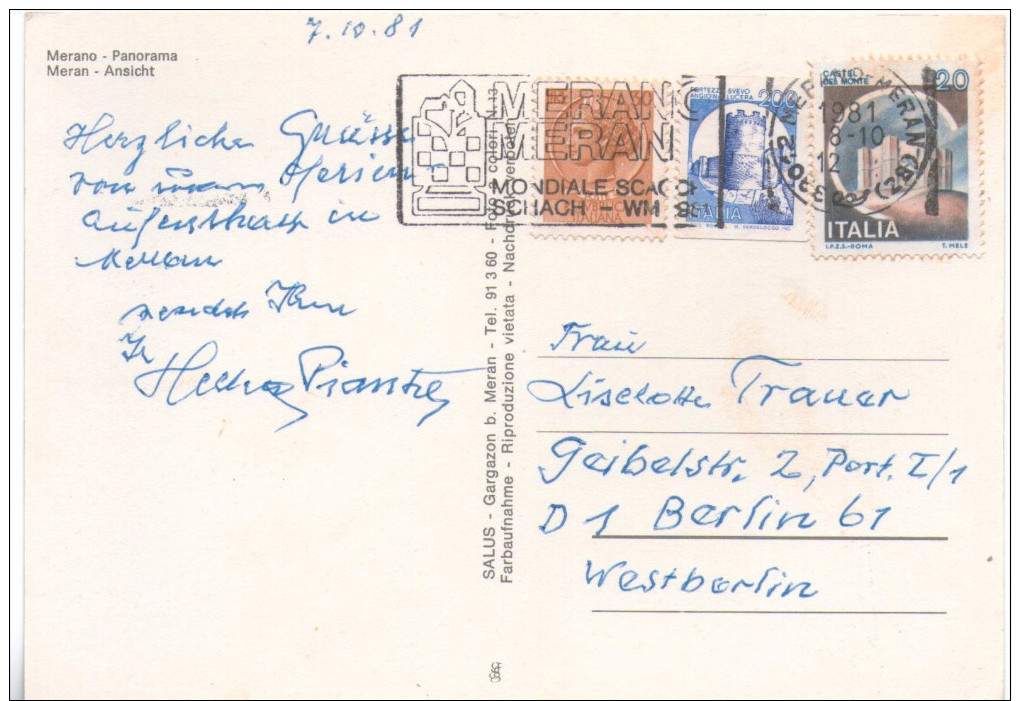 7.10.81
Merano - Panorama
Meran - Ansicht
Herzliche Grüsse
von
Aufenthalt in
Meran
sendet Ihnen
Ihr
MERANO
MERAN
MONDIALE SCACCHI
SCHACH - WM 1981
50
ITALIANA
FORTEZZA SVEVO
ANGIOINA LUCERA
200
ITALIA
1981
8-10
12
MERANO-MERAN
CASTEL
DEL MONTE
20
ITALIA
I.P.Z.S.-ROMA T. MELE
SALUS - Gargazon b. Meran - Tel. 91 3 60 - Foto a colori N. 13
Farbaufnahme - Riproduzione vietata - Nachdruck verboten
Frau
Liselotte Trauer
Geibelstr. 2, Port. I/1
D 1 Berlin 61
Westberlin